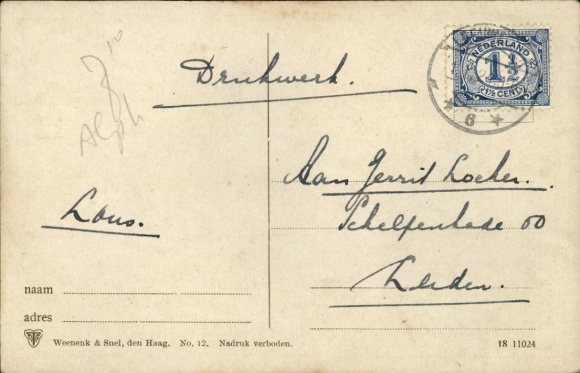 Drukwerk.
NEDERLAND
1½
1½ CENT
6
Alph
Aan Gerrit Locher.
Schelpenkade 60
Leiden.
Lous.
naam
adres
Weenenk & Snel, den Haag. No. 12. Nadruk verboden.
18 11024